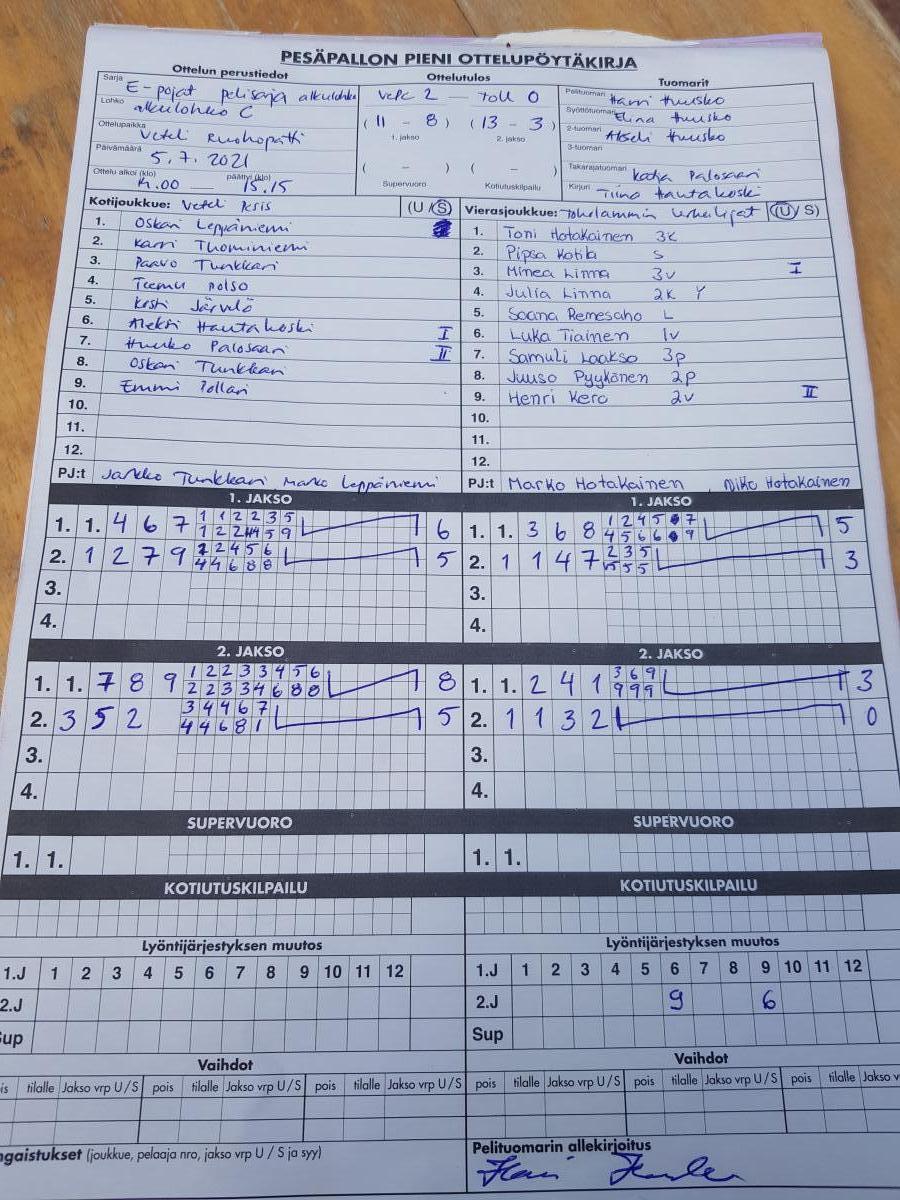 PESÄPALLON PIENI OTTELUPÖYTÄKIRJA
Ottelun perustiedot Ottelutulos Tuomarit
Sarja E-pojat pelisarja alkulohko
Lohko alkulohko C
Ottelupaikka Veteli Ruohopatti
Päivämäärä 5.7.2021
Ottelu alkoi (klo) 14.00 — päättyi (klo) 15.15
VetPe 2 — ToU 0
(11 - 8) (13 - 3)
1. jakso 2. jakso
( - ) ( - )
Supervuoro Kotiutuskilpailu
Pelituomari Harri Huusko
Syöttötuomari Elina Huusko
2-tuomari Akseli Huusko
3-tuomari
Takarajatuomari Katja Palosaari
Kirjuri Tiina Hautakoski
Kotijoukkue: Veteli Pesis (U/S)
1. Oskari Leppäniemi
2. Karri Thominiemi
3. Paavo Tunkkari
4. Teemu Polso
5. Kosti Järvelä
6. Aleksi Hautakoski I
7. Huuko Palosaari II
8. Oskari Tunkkari
9. Emmi Pollari
10.
11.
12.
PJ:t Jarkko Tunkkari Marko Leppäniemi
Vierasjoukkue: Toholammin Urheilijat (U/S)
1. Toni Hotakainen 3k
2. Pipsa Kotila S
3. Minea Linna 3v I
4. Julia Linna 2k Y
5. Saana Remesaho L
6. Luka Tiainen 1v
7. Samuli Laakso 3p
8. Juuso Pyykönen 2p
9. Henri Kero 2v II
10.
11.
12.
PJ:t Marko Hotakainen , Niko Hotakainen
1. JAKSO 1. JAKSO
1. 1. 4 6 7 1 1 2 2 3 5 6
1 2 2 4 5 9
2. 1 2 7 9 2 2 4 5 6 5
4 4 6 8 8
3.
4.
1. 1. 3 6 8 1 2 4 5 7 5
4 5 6 6 9
2. 1 1 4 7 2 3 5 3
5 5 5
3.
4.
2. JAKSO 2. JAKSO
1. 1. 7 8 9 1 2 2 3 3 4 5 6 8
2 2 3 3 4 6 8 8
2. 3 5 2 3 4 4 6 7 5
4 4 6 8 1
3.
4.
1. 1. 2 4 1 3 6 9 3
9 9 9
2. 1 1 3 2 0
3.
4.
SUPERVUORO SUPERVUORO
1. 1. 1. 1.
KOTIUTUSKILPAILU KOTIUTUSKILPAILU
Lyöntijärjestyksen muutos Lyöntijärjestyksen muutos
1.J 1 2 3 4 5 6 7 8 9 10 11 12 1.J 1 2 3 4 5 6 7 8 9 10 11 12
2.J 2.J 9 6
Sup Sup
Vaihdot Vaihdot
is tilalle Jakso vrp U/S pois tilalle Jakso vrp U/S pois tilalle Jakso vrp U/S pois tilalle Jakso vrp U/S pois tilalle Jakso vrp U/S pois tilalle Jakso v
ngaistukset (joukkue, pelaaja nro, jakso vrp U / S ja syy) Pelituomarin allekirjoitus